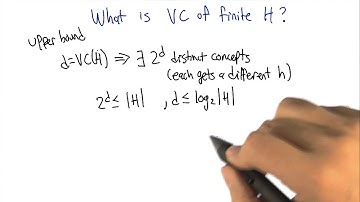 What is VC of finite H?
upper bound
d=VC(H) ⟹ ∃ 2^d distinct concepts
(each gets a different h)
2^d ≤ |H| , d ≤ log₂|H|